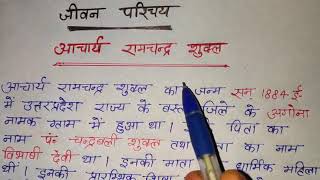 जीवन परिचय
आचार्य रामचन्द्र शुक्ल
आचार्य रामचन्द्र शुक्ल का जन्म सन 1884 ई
में उत्तरप्रदेश राज्य के बस्ती जिले के अगोना
नामक ग्राम में हुआ था। इनके पिता का
नाम पं॰ चन्द्रबली शुक्ल तथा का नाम
विभाषी देवी था। इनकी माता धार्मिक महिला
थीं। इनकी प्रारम्भिक